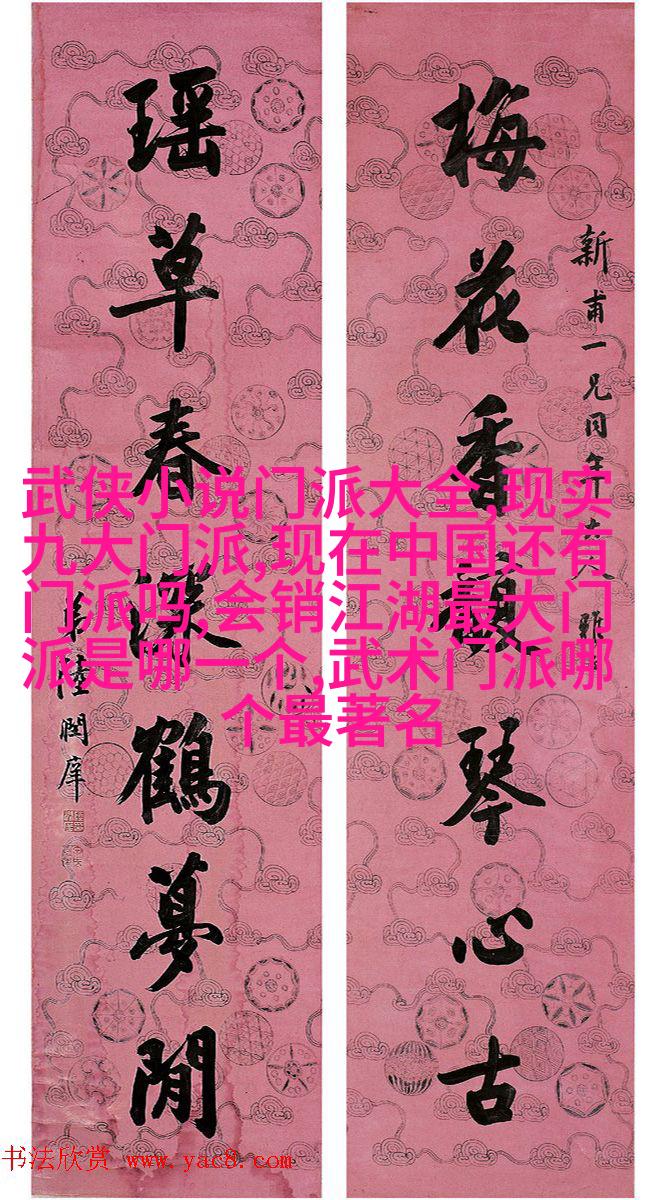 梅花香馥琴心古
新甫一兄同年大人雅
瑶草春深鶴夢閒
弟陸潤庠
武侠小说门派大全,现实
九大门派,现在中国还有
门派吗,会销江湖最大门
派是哪一个,武术门派哪
个最著名
书法欣赏 www.yac8.com